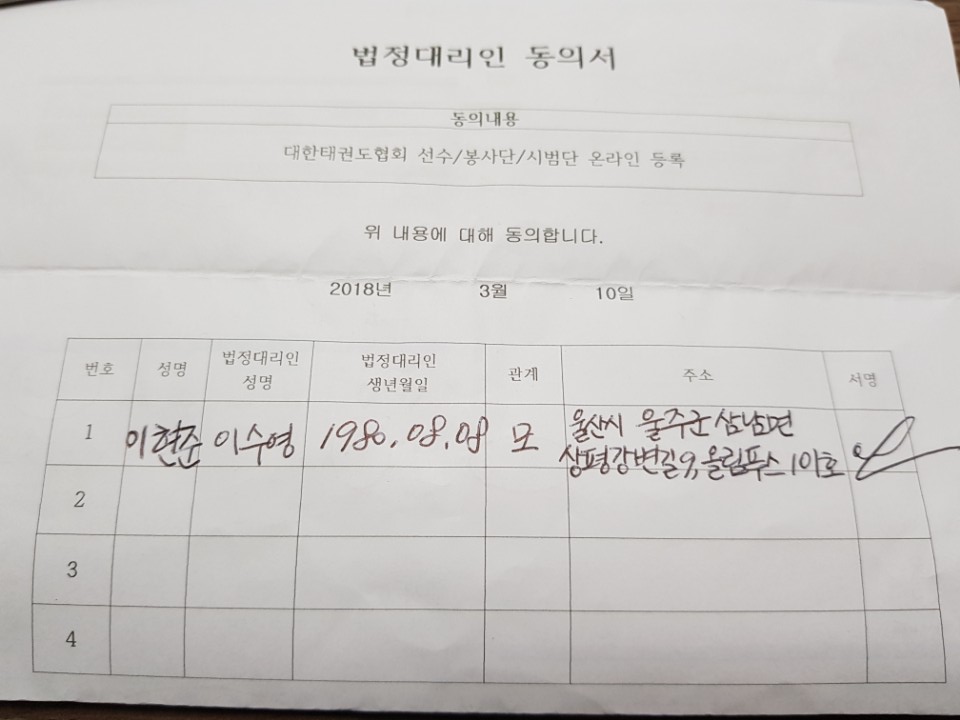 법정대리인 동의서
동의내용
대한태권도협회 선수/봉사단/시범단 온라인 등록
위 내용에 대해 동의합니다.
2018년 3월 10일
번호 성명 법정대리인 성명 법정대리인 생년월일 관계 주소 서명
1 이현준 이수영 1980.08.08 모 울산시 울주군 삼남면
상평강변길9, 올림푸스 101호
2
3
4